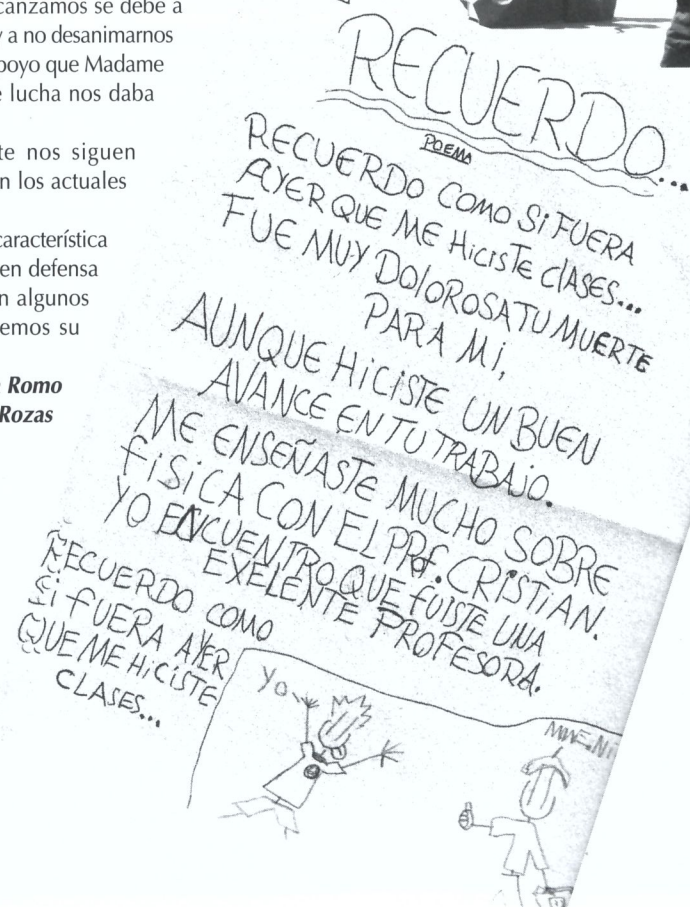 canzamos se debe a
y a no desanimarnos
poyo que Madame
e lucha nos daba
te nos siguen
n los actuales
característica
en defensa
n algunos
emos su
Romo
Rozas
RECUERDO...
POEMA
RECUERDO COMO SI FUERA
AYER QUE ME HiCiSTE ClASES...
FUE MUY DOlOROSA TU MUERTE
PARA Mí,
AUNQUE HiCiSTE UN BUEN
AVANCE EN TU TRABAJO.
ME ENSEÑASTE MUCHO SOBRE
FíSiCA CON EL PRf. CRiSTiAN.
YO ENCUENTRO QUE fUiSTE UNA
EXELENTE PROFESORA.
RECUERDO COMO
Si fUERA AYER
QUE ME HiCiSTE
CLASES...
Yo